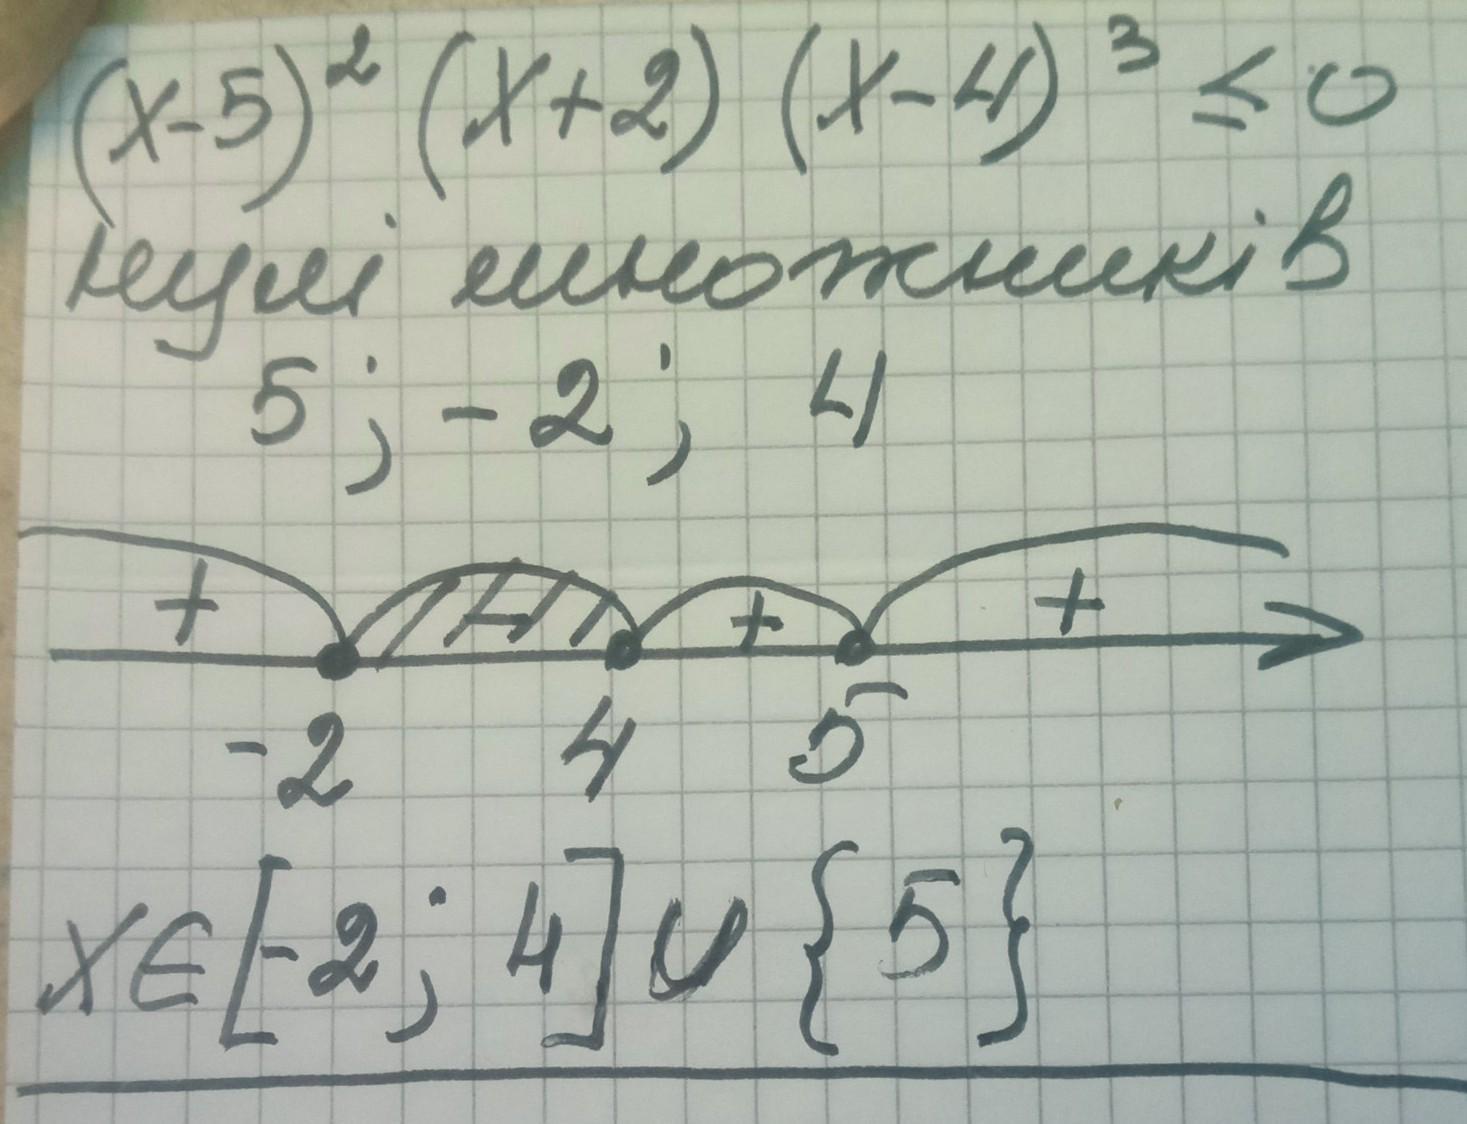 (x-5)² (x+2) (x-4)³ ≤ 0
нулі множників
5; -2; 4
+ - + +
-2 4 5
x∈[-2; 4]∪{5}